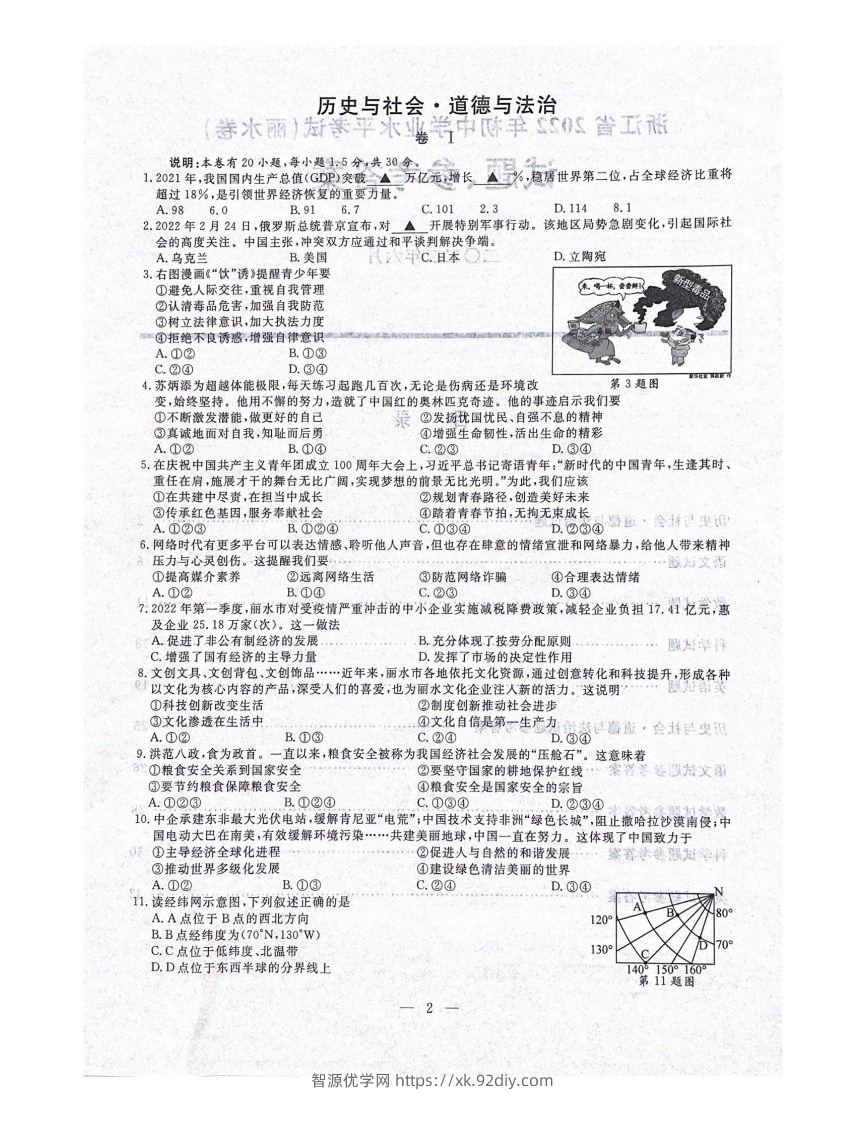 历史与社会·道德与法治
卷 Ⅰ
说明:本卷有20小题,每小题1.5分,共30分。
1.2021年,我国国内生产总值(GDP)突破 ▲ 万亿元,增长 ▲ %,稳居世界第二位,占全球经济比重将
超过18%,是引领世界经济恢复的重要力量。
A.98 6.0 B.91 6.7 C.101 2.3 D.114 8.1
2.2022年2月24日,俄罗斯总统普京宣布,对 ▲ 开展特别军事行动。该地区局势急剧变化,引起国际社
会的高度关注。中国主张,冲突双方应通过和平谈判解决争端。
A.乌克兰 B.美国 C.日本 D.立陶宛
3.右图漫画《“饮”诱》提醒青少年要
①避免人际交往,重视自我管理
②认清毒品危害,加强自我防范
③树立法律意识,加大执法力度
④拒绝不良诱惑,增强自律意识
A.①② B.①③
C.②④ D.③④
来,喝一杯,尝尝鲜!
新型毒品
第3题图
4.苏炳添为超越体能极限,每天练习起跑几百次,无论是伤病还是环境改
变,始终坚持。他用不懈的努力,造就了中国红的奥林匹克奇迹。他的事迹启示我们要
①不断激发潜能,做更好的自己 ②发扬忧国忧民、自强不息的精神
③真诚地面对自我,知耻而后勇 ④增强生命韧性,活出生命的精彩
A.①② B.①④ C.②③ D.③④
5.在庆祝中国共产主义青年团成立100周年大会上,习近平总书记寄语青年:“新时代的中国青年,生逢其时、
重任在肩,施展才干的舞台无比广阔,实现梦想的前景无比光明。”为此,我们应该
①在共建中尽责,在担当中成长 ②规划青春路径,创造美好未来
③传承红色基因,服务奉献社会 ④踏着青春节拍,无拘无束成长
A.①②③ B.①②④ C.①③④ D.②③④
6.网络时代有更多平台可以表达情感、聆听他人声音,但也存在肆意的情绪宣泄和网络暴力,给他人带来精神
压力与心灵创伤。这提醒我们要
①提高媒介素养 ②远离网络生活 ③防范网络诈骗 ④合理表达情绪
A.①② B.①④ C.②③ D.③④
7.2022年第一季度,丽水市对受疫情严重冲击的中小企业实施减税降费政策,减轻企业负担17.41亿元,惠
及企业25.18万家(次)。这一做法
A.促进了非公有制经济的发展 B.充分体现了按劳分配原则
C.增强了国有经济的主导力量 D.发挥了市场的决定性作用
8.文创文具、文创背包、文创饰品……近年来,丽水市各地依托文化资源,通过创意转化和科技提升,形成各种
以文化为核心内容的产品,深受人们的喜爱,也为丽水文化企业注入新的活力。这说明
①科技创新改变生活 ②制度创新推动社会进步
③文化渗透在生活中 ④文化自信是第一生产力
A.①② B.①③ C.②④ D.③④
9.洪范八政,食为政首。一直以来,粮食安全被称为我国经济社会发展的“压舱石”。这意味着
①粮食安全关系到国家安全 ②要坚守国家的耕地保护红线
③要节约粮食保障粮食安全 ④粮食安全是国家安全的宗旨
A.①②③ B.①②④ C.①③④ D.②③④
10.中企承建东非最大光伏电站,缓解肯尼亚“电荒”;中国技术支持非洲“绿色长城”,阻止撒哈拉沙漠南侵;中
国电动大巴在南美,有效缓解环境污染……共建美丽地球,中国一直在努力。这体现了中国致力于
①主导经济全球化进程 ②促进人与自然的和谐发展
③推动世界多级化发展 ④建设绿色清洁美丽的世界
A.①② B.①③ C.②④ D.③④
11.读经纬网示意图,下列叙述正确的是
A.A点位于B点的西北方向
B.B点经纬度为(70°N,130°W)
C.C点位于低纬度、北温带
D.D点位于东西半球的分界线上
N
A B 80°
120°
D 70°
130° C
140° 150° 160°
第11题图
— 2 —
智源优学网 https://xk.92diy.com